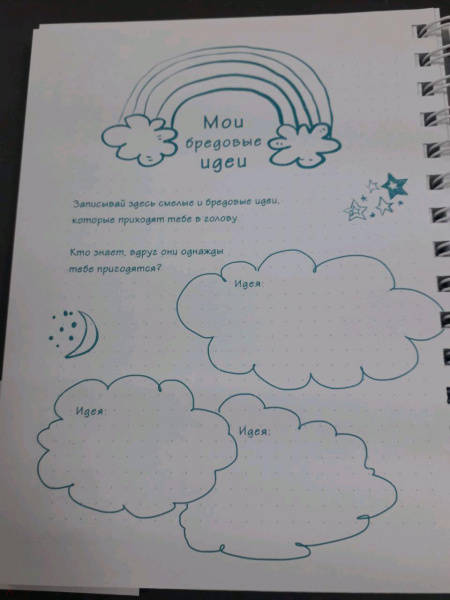 Мои
бредовые
идеи
Записывай здесь смелые и бредовые идеи,
которые приходят тебе в голову.
Кто знает, вдруг они однажды
тебе пригодятся?
Идея:
Идея:
Идея: